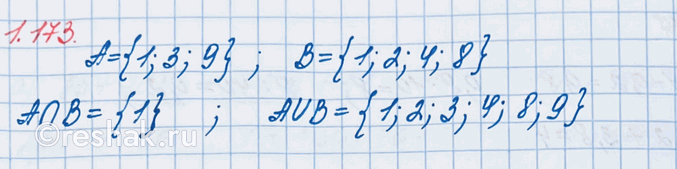 1.173.
A={1; 3; 9} ; B={1; 2; 4; 8}
A∩B= {1} ; A∪B= {1; 2; 3; 4; 8; 9}
©Reshak.ru